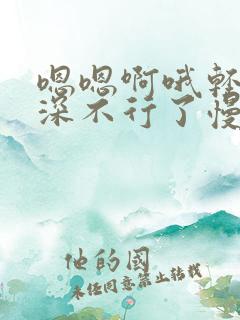 嗯嗯啊哦轻
深不行了慢
他的國
未经同意禁止转载